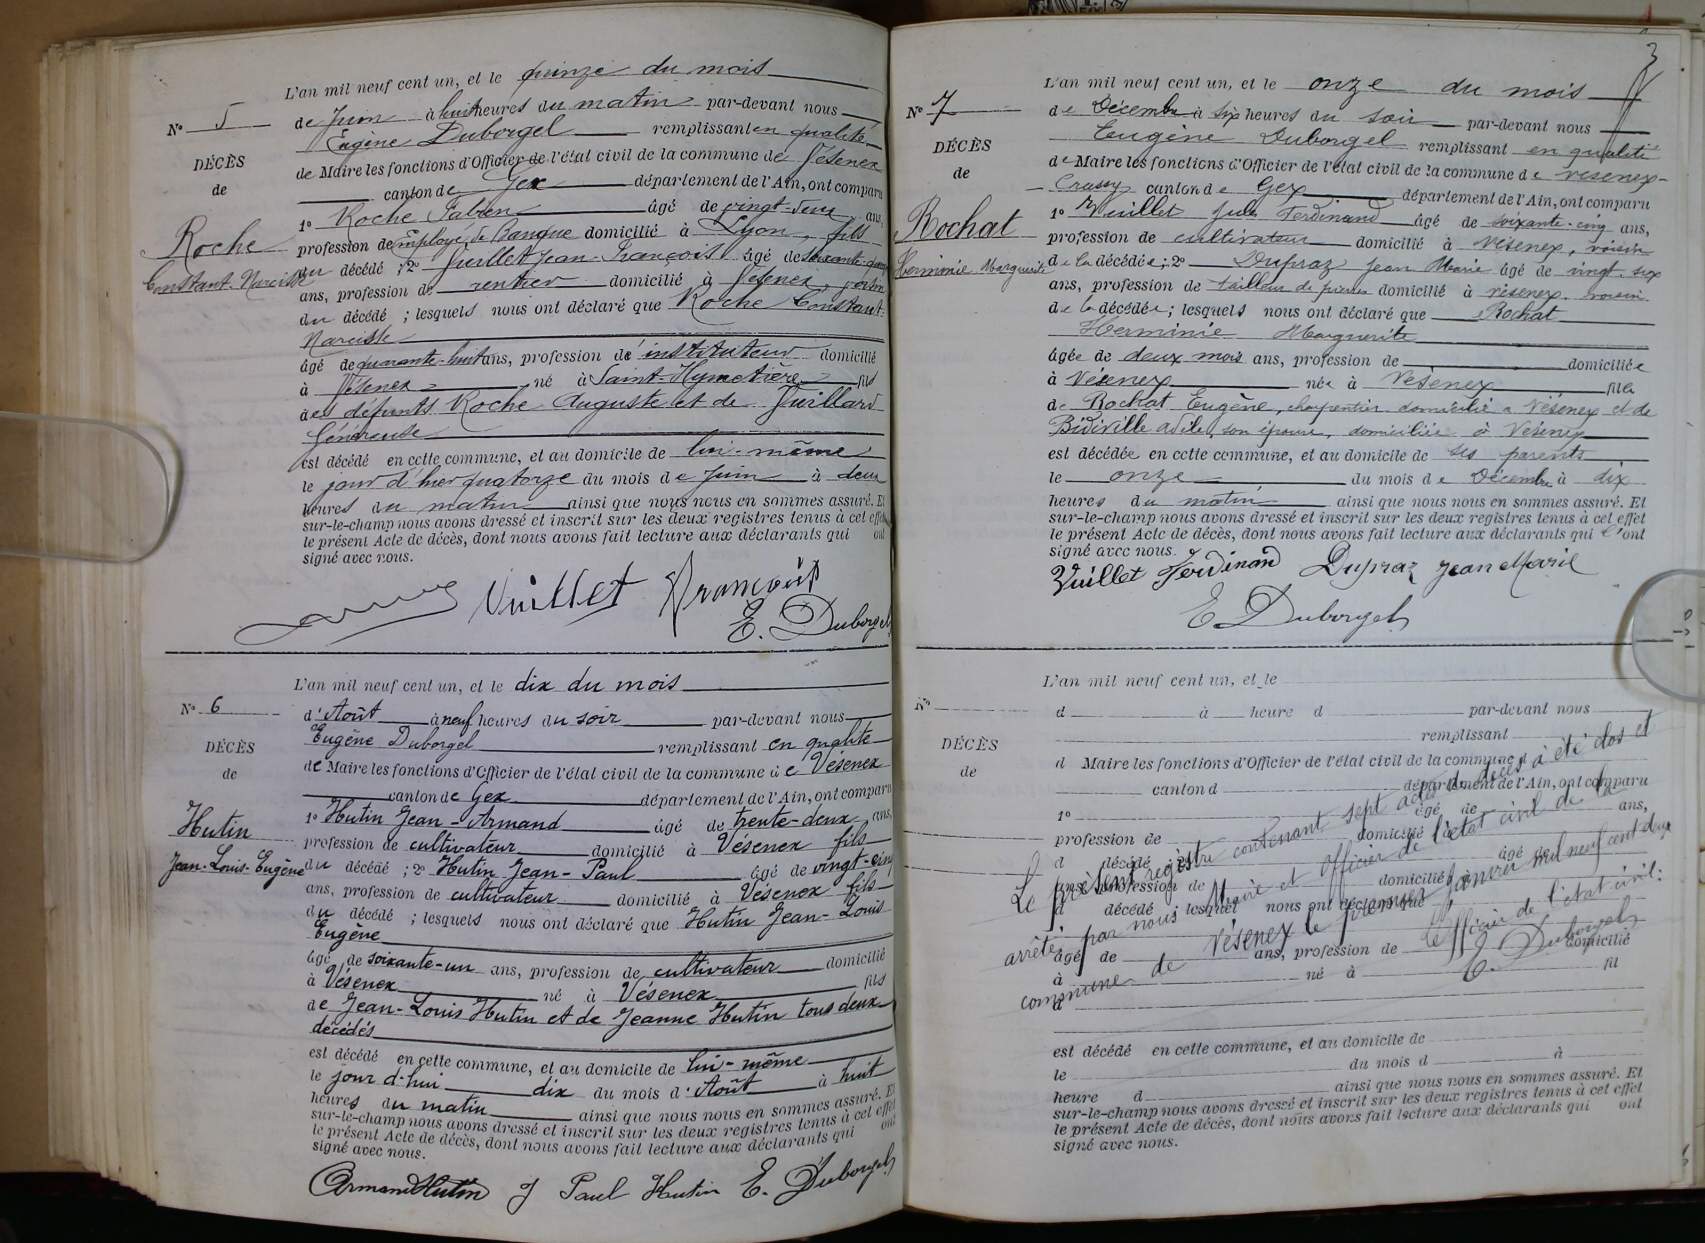 L'an mil neuf cent un, et le quinze du mois
N° 5
de Juin à huit heures du matin par-devant nous
Eugène Duborgel remplissant en qualité
DÉCÈS
de Maire les fonctions d'Officier de l'état civil de la commune de Vésenex
de
canton de Gex département de l'Ain, ont comparu
1° Roche Fabien âgé de vingt-deux ans,
Roche
profession de Employé de Banque domicilié à Lyon, fils
Constant-Narcisse
du décédé ; 2° Vuillet Jean-François âgé de soixante
ans, profession de rentier domicilié à Vésenex, voisin
du décédé ; lesquels nous ont déclaré que Roche Constant-
Narcisse
âgé de quarante-huit ans, profession d'instituteur domicilié
à Vésenex né à Saint-Hymetière fils
des défunts Roche Auguste et de Juillard
Généreuse
est décédé en cette commune, et au domicile de lui-même
le jour d'hier quatorze du mois de Juin à deux
heures du matin ainsi que nous nous en sommes assuré. Et
sur-le-champ nous avons dressé et inscrit sur les deux registres tenus à cet effet
le présent Acte de décès, dont nous avons fait lecture aux déclarants qui ont
signé avec nous.
Vuillet François
E. Duborgel
L'an mil neuf cent un, et le dix du mois
N° 6
d'Août à neuf heures du soir par-devant nous
Eugène Duborgel remplissant en qualité
DÉCÈS
de Maire les fonctions d'Officier de l'état civil de la commune de Vésenex
de
canton de Gex département de l'Ain, ont comparu
1° Hutin Jean-Armand âgé de trente-deux ans,
Hutin
profession de cultivateur domicilié à Vésenex fils
Jean-Louis-Eugène
du décédé ; 2° Hutin Jean-Paul âgé de vingt-cinq
ans, profession de cultivateur domicilié à Vésenex fils
du décédé ; lesquels nous ont déclaré que Hutin Jean-Louis
Eugène
âgé de soixante-un ans, profession de cultivateur domicilié
à Vésenex né à Vésenex fils
de Jean-Louis Hutin et de Jeanne Hutin tous deux
décédés
est décédé en cette commune, et au domicile de lui-même
le jour d'hui dix du mois d'Août à huit
heures du matin ainsi que nous nous en sommes assuré. Et
sur-le-champ nous avons dressé et inscrit sur les deux registres tenus à cet effet
le présent Acte de décès, dont nous avons fait lecture aux déclarants qui ont
signé avec nous.
Armand Hutin J Paul Hutin E. Duborgel
3
L'an mil neuf cent un, et le onze du mois
N° 7
de Décembre à six heures du soir par-devant nous
Eugène Duborgel remplissant en qualité
DÉCÈS
de Maire les fonctions d'Officier de l'état civil de la commune de Vésenex-
de
Crassy canton de Gex département de l'Ain, ont comparu
1° Vuillet Jules Ferdinand âgé de soixante-cinq ans,
Rochat
profession de cultivateur domicilié à Vésenex, voisin
Herminie-Marguerite
de la décédée ; 2° Dupraz Jean Marie âgé de vingt-six
ans, profession de tailleur de pierres domicilié à Vésenex, voisin
de la décédée ; lesquels nous ont déclaré que Rochat
Herminie Marguerite
âgée de deux mois ans, profession de domiciliée
à Vésenex née à Vésenex fille
de Rochat Eugène, charpentier domicilié à Vésenex et de
Adèle, son épouse, domiciliée à Vésenex
est décédée en cette commune, et au domicile de ses parents
le onze du mois de Décembre à dix
heures du matin ainsi que nous nous en sommes assuré. Et
sur-le-champ nous avons dressé et inscrit sur les deux registres tenus à cet effet
le présent Acte de décès, dont nous avons fait lecture aux déclarants qui l'ont
signé avec nous.
Vuillet Ferdinand Dupraz Jean Marie
E. Duborgel
L'an mil neuf cent un, et le
N°
d à heure d par-devant nous
remplissant
DÉCÈS
d Maire les fonctions d'Officier de l'état civil de la commune d
de
canton d département de l'Ain, ont comparu
1° âgé de ans,
profession de domicilié à
d décédé ; 2° âgé de
ans, profession de domicilié à
d décédé ; lesquel nous ont déclaré que
âgé de ans, profession de domicilié
à né à fil
d
Le présent registre contenant sept actes de décès a été clos et
arrêté par nous Maire et Officier de l'état civil de la
commune de Vésenex le premier Janvier mil neuf cent deux
l'Officier de l'état civil:
E. Duborgel
est décédé en cette commune, et au domicile de
le du mois d à
heure d ainsi que nous nous en sommes assuré. Et
sur-le-champ nous avons dressé et inscrit sur les deux registres tenus à cet effet
le présent Acte de décès, dont nous avons fait lecture aux déclarants qui ont
signé avec nous.